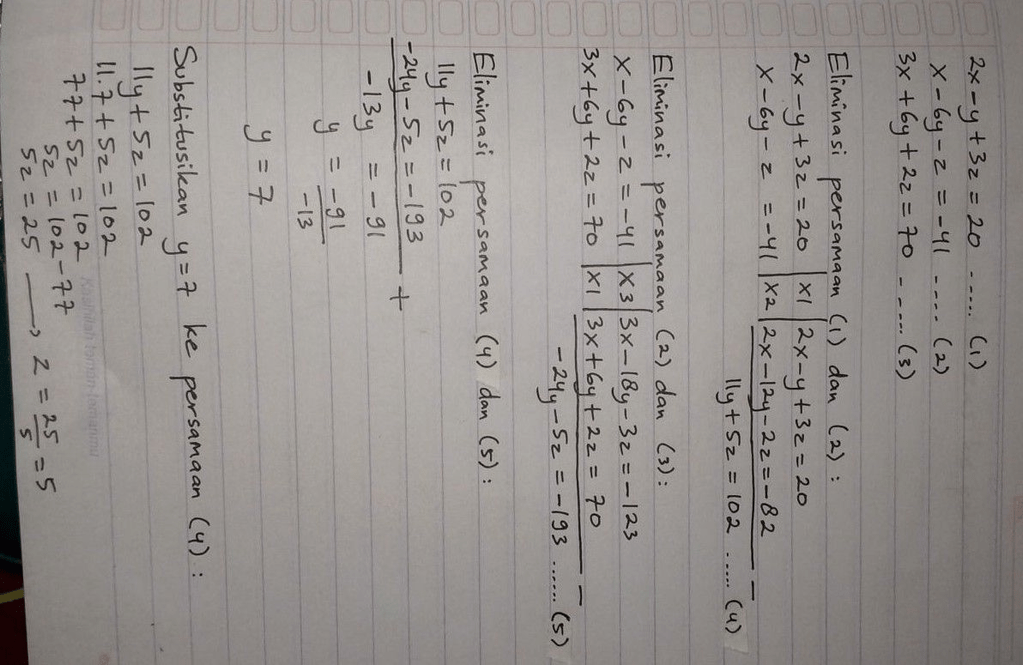 2x - y + 3z = 20 ..... (1)
x - 6y - z = -41 .... (2)
3x + 6y + 2z = 70 ..... (3)
Eliminasi persamaan (1) dan (2) :
2x - y + 3z = 20 | x1 | 2x - y + 3z = 20
x - 6y - z = -41 | x2 | 2x - 12y - 2z = -82 -
11y + 5z = 102 ..... (4)
Eliminasi persamaan (2) dan (3) :
x - 6y - z = -41 | x3 | 3x - 18y - 3z = -123
3x + 6y + 2z = 70 | x1 | 3x + 6y + 2z = 70 -
-24y - 5z = -193 ...... (5)
Eliminasi persamaan (4) dan (5) :
11y + 5z = 102
-24y - 5z = -193 +
-13y = -91
y = -91
-13
y = 7
Substitusikan y = 7 ke persamaan (4) :
11y + 5z = 102
11.7 + 5z = 102
77 + 5z = 102
5z = 102 - 77
5z = 25 → z = 25/5 = 5